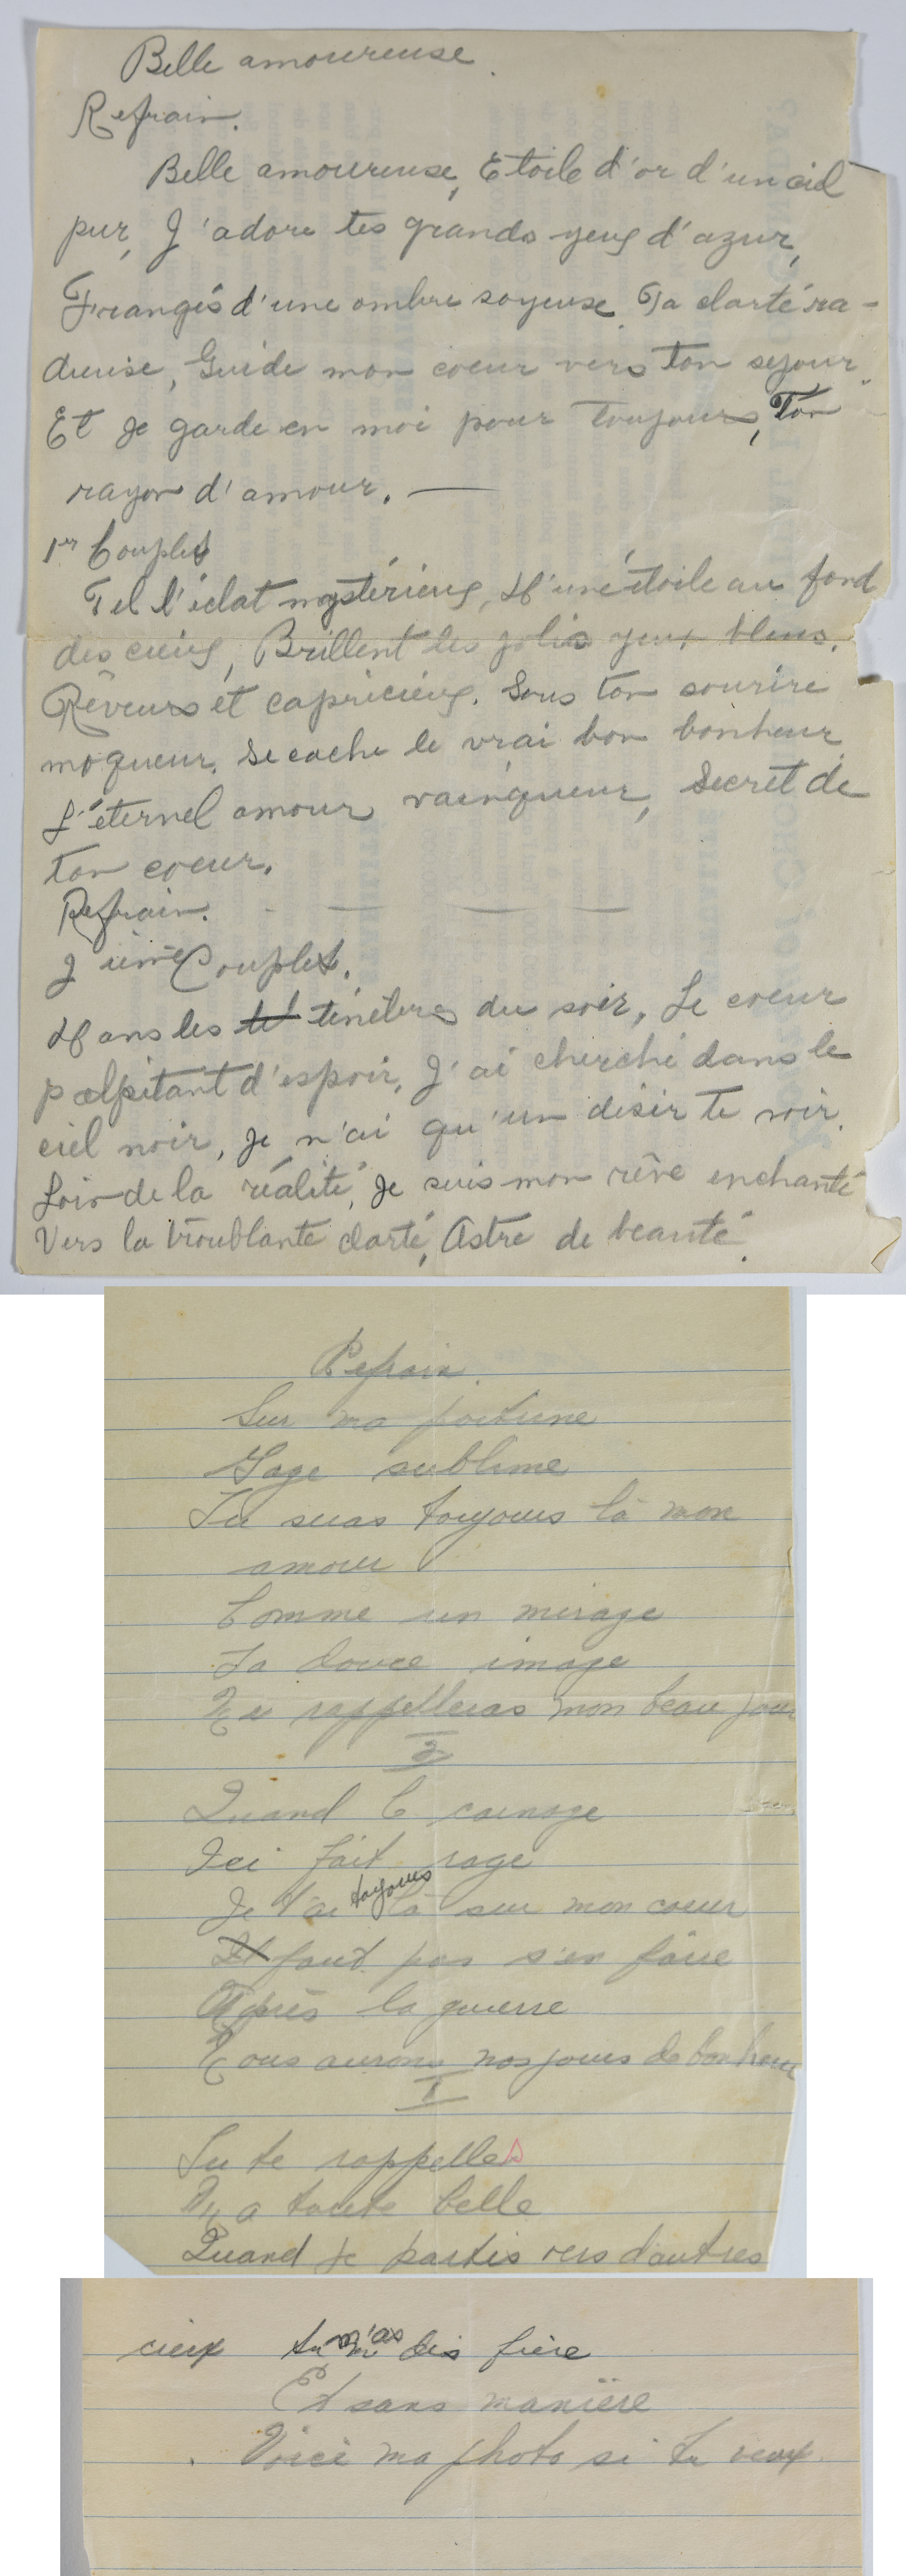 Belle amoureuse.
Refrain.
Belle amoureuse, Etoile d'or d'un ciel
pur, J'adore tes grands yeux d'azur,
Frangés d'une ombre soyeuse. Ta clarté ra-
dieuse, Guide mon coeur vers ton sejour
Et je garde en moi pour toujours, Ton
rayon d'amour. —
1er Couplet
Tel l'éclat mystérieux, D'une étoile au fond
des cieux, Brillent les jolis yeux bleus.
Rêveurs et capricieux. Sous ton sourire
moqueur. Se cache le vrai bon bonheur
L'éternel amour vainqueur, Secret de
ton coeur.
Refrain. - — — —
2 ième Couplet.
Dans les te ténèbres du soir, Le coeur
palpitant d'espoir, J'ai cherché dans le
ciel noir, Je n'ai qu'un désir te voir.
Loin de la réalité, Je suis mon rêve enchanté
Vers la troublante clarté, Astre de beauté.
Refrain.
Sur ma poitrine
Gage sublime
Tu seras toujours là mon
amour
Comme un mirage
Ta douce image
Me rappelleras mon beau jour
2
Quand le carnage
Ici fait rage
Je t'ai toujours là sur mon coeur
Il faut pas s'en faire
Après la guerre
Nous aurons nos jours de bonheur
I
Tu te rappelles
Ma toute belle
Quand je partis vers d'autres
cieux tu m'as dis fière
Et sans manière
Voici ma photo si tu veux.